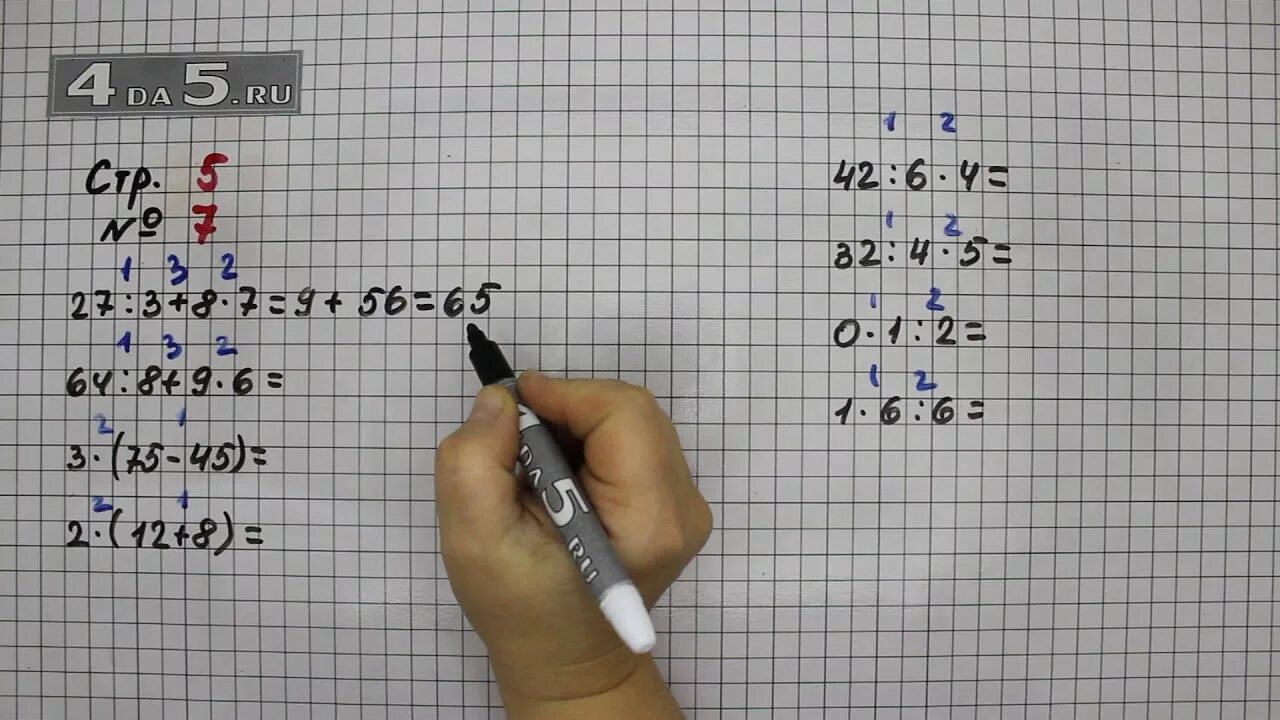 4DA5.RU
Стр. 5
№ 7
1 3 2
27:3+8·7=9+56=65
1 3 2
64:8+9·6=
2 1
3·(75-45)=
2 1
2·(12+8)=
1 2
42:6·4=
1 2
32:4·5=
1 2
0·1:2=
1 2
1·6:6=
DA5.RU